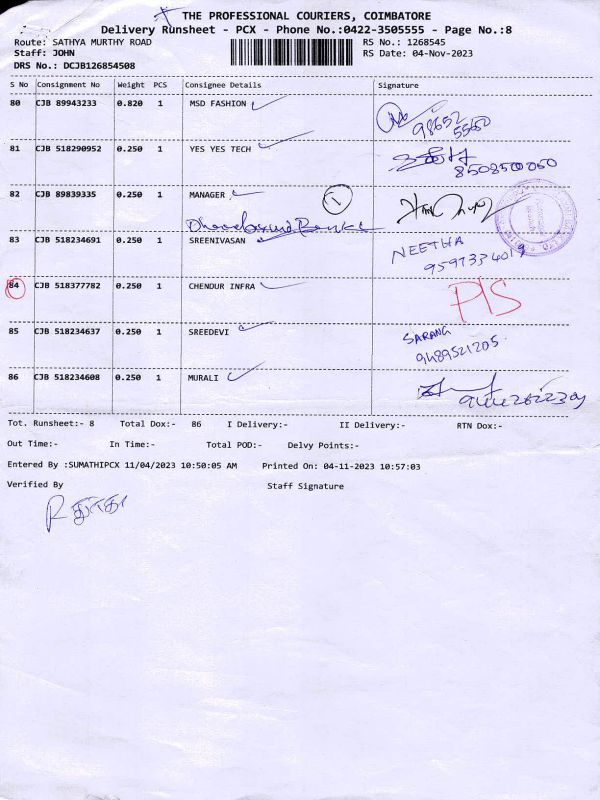 THE PROFESSIONAL COURIERS, COIMBATORE
Delivery Runsheet - PCX - Phone No.:0422-3505555 - Page No.:8
Route: SATHYA MURTHY ROAD RS No.: 1268545
Staff: JOHN RS Date: 04-Nov-2023
DRS No.: DCJB126854508
S No Consignment No Weight PCS Consignee Details Signature
80 CJB 89943233 0.820 1 MSD FASHION
98652
5560
81 CJB 518290952 0.250 1 YES YES TECH
8508500050
82 CJB 89839335 0.250 1 MANAGER 1
83 CJB 518234691 0.250 1 SREENIVASAN NEETHA
9597334019
84 CJB 518377782 0.250 1 CHENDUR INFRA P/S
85 CJB 518234637 0.250 1 SREEDEVI SARANG
9489521205
86 CJB 518234608 0.250 1 MURALI
Tot. Runsheet:- 8 Total Dox:- 86 I Delivery:- II Delivery:- RTN Dox:-
Out Time:- In Time:- Total POD:- Delvy Points:-
Entered By :SUMATHIPCX 11/04/2023 10:50:05 AM Printed On: 04-11-2023 10:57:03
Verified By Staff Signature